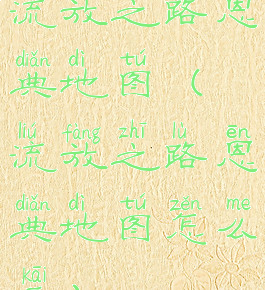 流放之路恩
diǎn dì tú
典地图（
liú fàng zhī lù ēn
流放之路恩
diǎn dì tú zěn me
典地图怎么
kāi